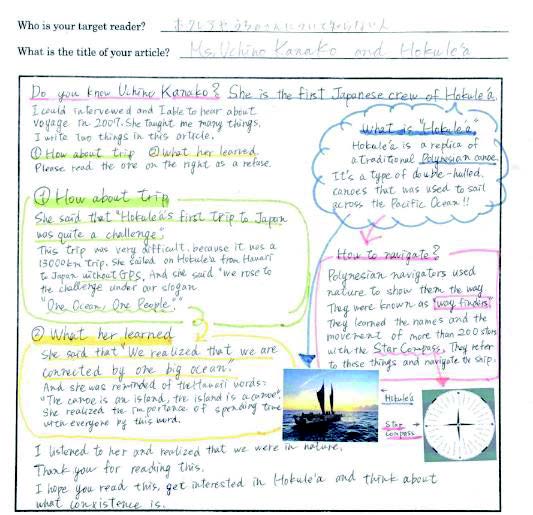 Who is your target reader? ホクレアやうちのさんについて知らない人
What is the title of your article? Ms. Uchino Kanako and Hokule'a
Do you know Uchino Kanako? She is the first Japanese crew of Hokule'a.
I could intervewed and I able to hear about
voyage in 2007. She taught me many things.
I write two things in this article.
① How about trip ② What her learned
Please read the one on the right as a refuse.
What is "Hokule'a"
Hokule'a is a replica of
a traditional Polynesian canoe.
It's a type of double-hulled
canoes that was used to sail
across the Pacific Ocean!!
① How about trip
She said that "Hokulea's first trip to Japan
was quite a challenge."
This trip was very difficult. because it was a
13000km trip. She sailed on Hokule'a from Hawaii
to Japan without GPS. And she said "we rose to
the challenge under our slogan
"One Ocean, One People"."
How to navigate?
Polynesian navigators used
nature to show them the way
They were known as "way finders"
They learned the names and the
movement of more than 200 stars
with the Star Compass. They refer
to these things and navigate the ship.
② What her learned
She said that "We realized that we are
connected by one big ocean."
And she was reminded of the Hawaii words:
"The canoe is an island, the island is a canoe".
She realized the importance of spending time
with everyone by this word.
Hokule'a
Star
Compass
I listened to her and realized that we were in nature.
Thank you for reading this.
I hope you read this, get interested in Hokule'a and think about
what conxistence is.